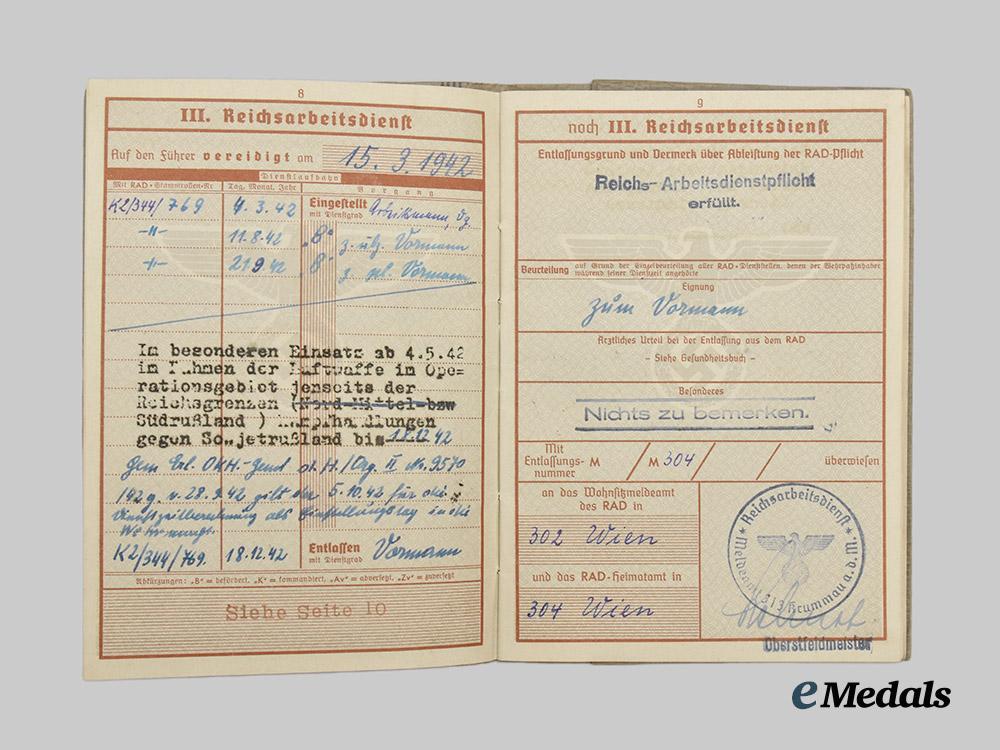 8
III. Reichsarbeitsdienst
Auf den Führer vereidigt am 15.3.1942
Dienstlaufbahn
Mit RAD-Stammrollen-Nr Tag, Monat, Jahr Vorgang
K2/344/769 4.3.42 Eingestellt mit Dienstgrad Arbeitsmann, Vg.
-"- 11.8.42 "B" z. üb. Vormann
-"- 21.9.42 "B" z. Vormann
Im besonderen Einsatz ab 4.5.42
im Rahmen der Luftwaffe in Ope=
rationsgebiet jenseits der
Reichsgrenzen (Nord-Mittel-bzw
Südrußland ) Kampfhandlungen
gegen Sowjetrußland bis 18.12.42
Gem. Erl. OKH.-Genst d. H./Org. II Nr. 9570
/42 g. v. 28.9.42 gilt der 5.10.42 für die
Dienstzeitberechnung als Einstellungstag in die
Wehrmacht.
K2/344/769. 18.12.42 Entlassen mit Dienstgrad Vormann
Abkürzungen: „B“ = befördert, „K“ = kommandiert, „Av“ = abversetzt, „Zv“ = zuversetzt
Siehe Seite 10
9
noch III. Reichsarbeitsdienst
Entlassungsgrund und Vermerk über Ableistung der RAD-Pflicht
Reichs-Arbeitsdienstpflicht
erfüllt.
Beurteilung auf Grund der Einzelbeurteilung aller RAD-Dienststellen, denen der Wehrpaßinhaber
während seiner Dienstzeit angehörte
Eignung
zum Vormann
Ärztliches Urteil bei der Entlassung aus dem RAD
– Siehe Gesundheitsbuch –
Besonderes
Nichts zu bemerken.
Mit
Entlassungs-
nummer M / M 304 / / überwiesen
an das Wohnsitzmeldeamt
des RAD in
302 Wien
und das RAD-Heimatamt in
304 Wien
Reichsarbeitsdienst
Meldeamt 313 Krummau a.d.M.
Oberstfeldmeister
eMedals